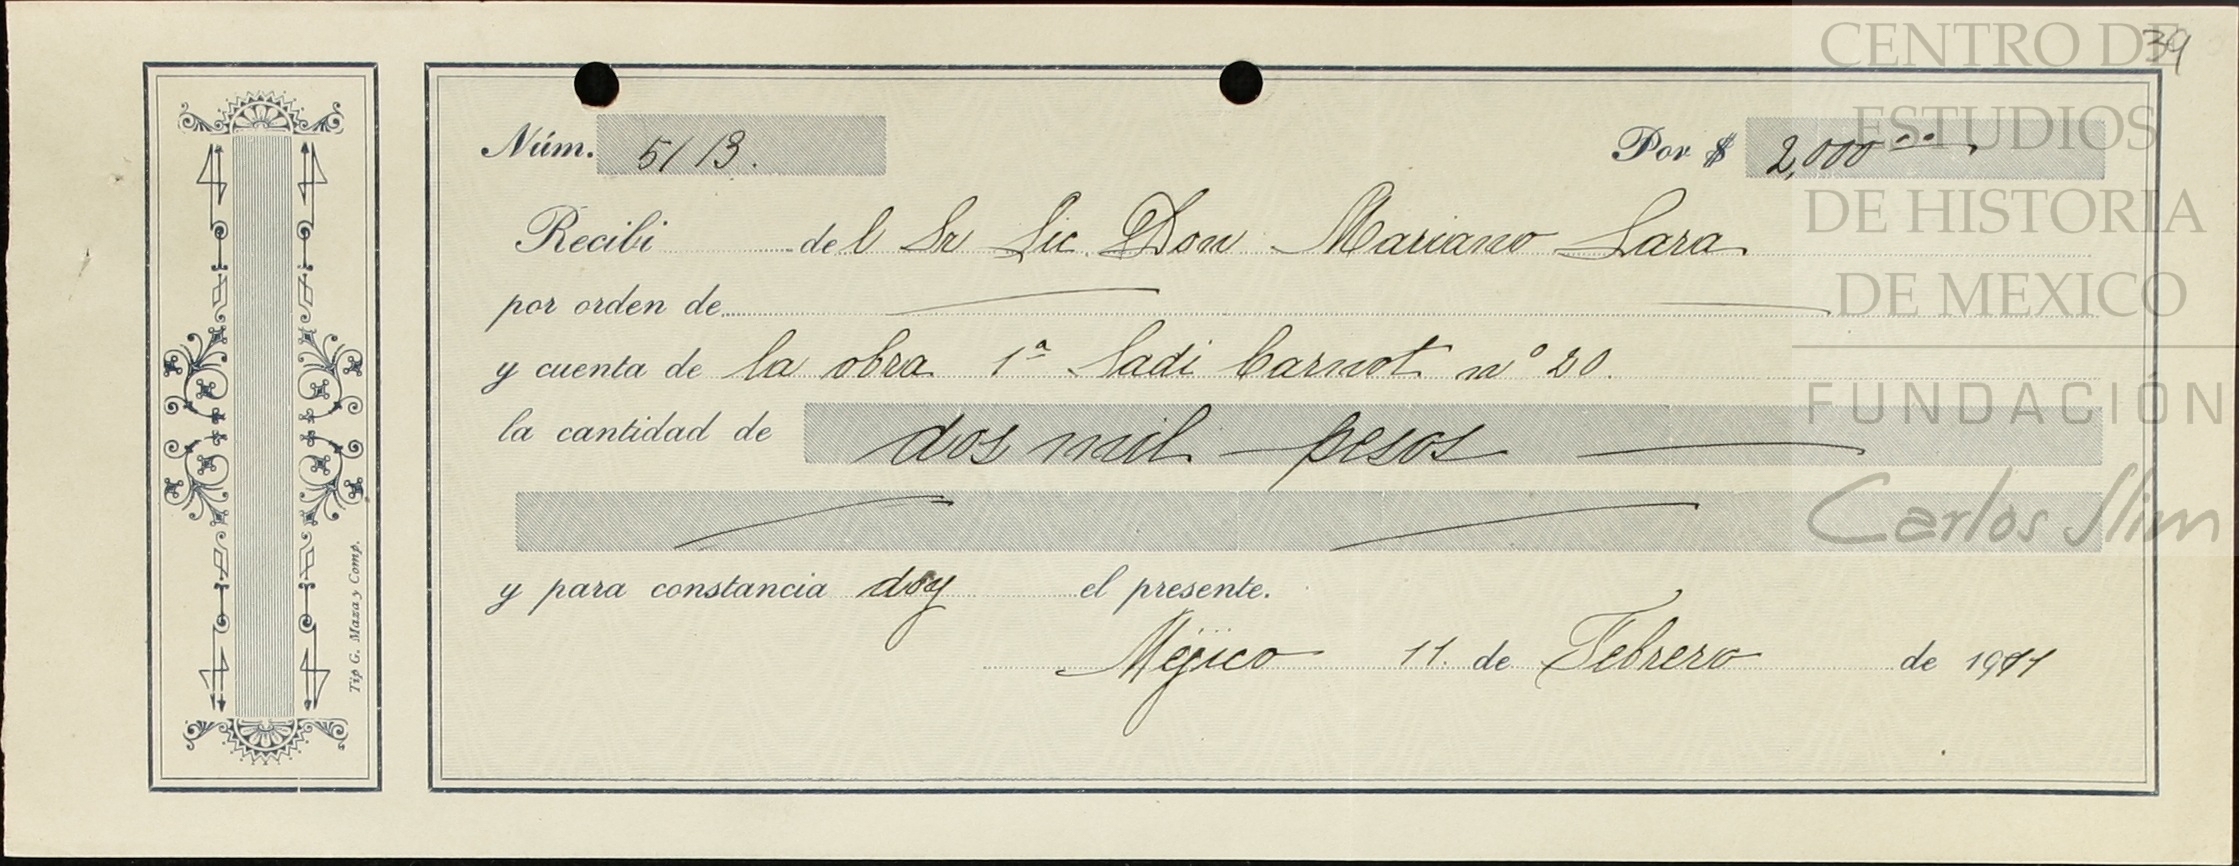 39
CENTRO DE
ESTUDIOS
DE HISTORIA
DE MEXICO
FUNDACIÓN
Carlos Slim
Núm. 5/13. Por $ 2,000°°
Recibi del Sr Lic. Don Mariano Lara
por orden de
y cuenta de la obra 1ª Sadi Carnot nº 20.
la cantidad de dos mil pesos
y para constancia doy el presente.
Méjico 11 de Febrero de 1911
Tip G. Maza y Comp.